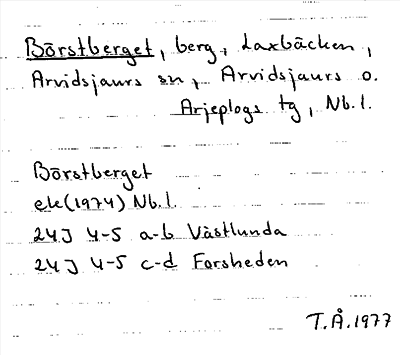 Börstberget, berg, Laxbäcken,
Arvidsjaurs sn, Arvidsjaurs o.
Arjeplogs tg, Nb.l.
Börstberget
ek(1974) Nb.l.
24J 4-5 a-b Västlunda
24J 4-5 c-d Forsheden
T.Å.1977